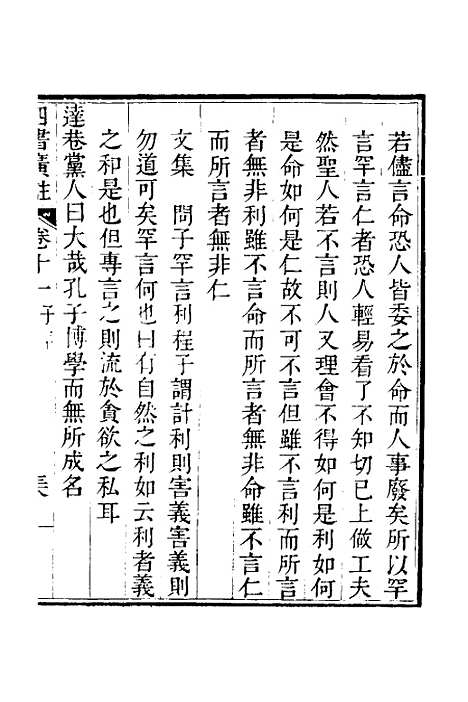 若儘言命恐人皆委之於命而人事廢矣所以罕
言罕言仁者恐人輕易看了不知切已上做工夫
然聖人若不言則人又理會不得如何是利如何
是命如何是仁故不可不言但雖不言利而所言
者無非利雖不言命而所言者無非命雖不言仁
而所言者無非仁
文集　問子罕言利程子謂計利則害義害義則
勿道可矣罕言何也曰有自然之利如云利者義
之和是也但專言之則流於貪欲之私耳
達巷黨人曰大哉孔子博學而無所成名
四書廣註　卷十一